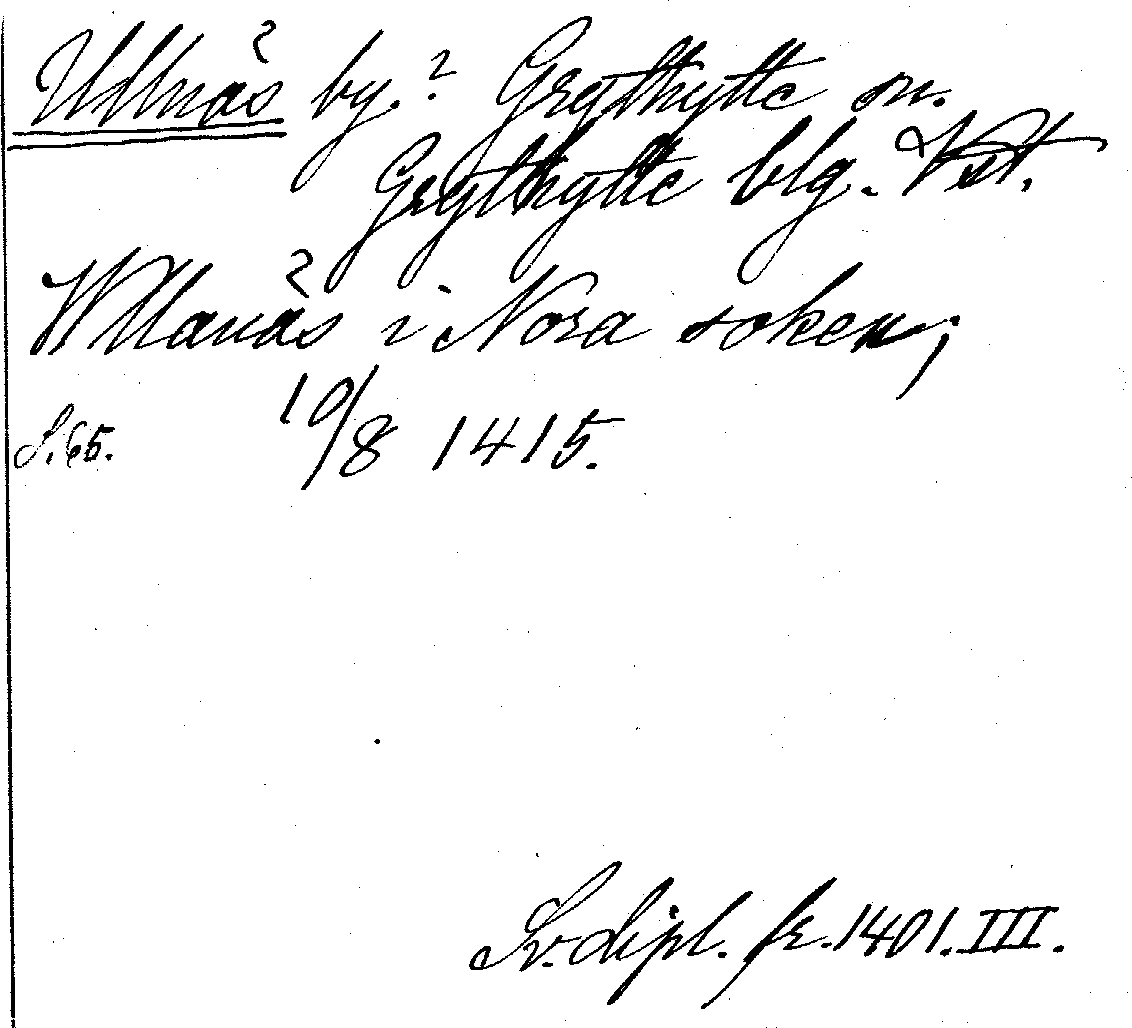 Ullnäs by.? Grythytte sn.
Grythytte blg. Vst.
Wllanäs i Nora soken;
S. 65. 10/8 1415.
Sv. dipl. fr. 1401. III.